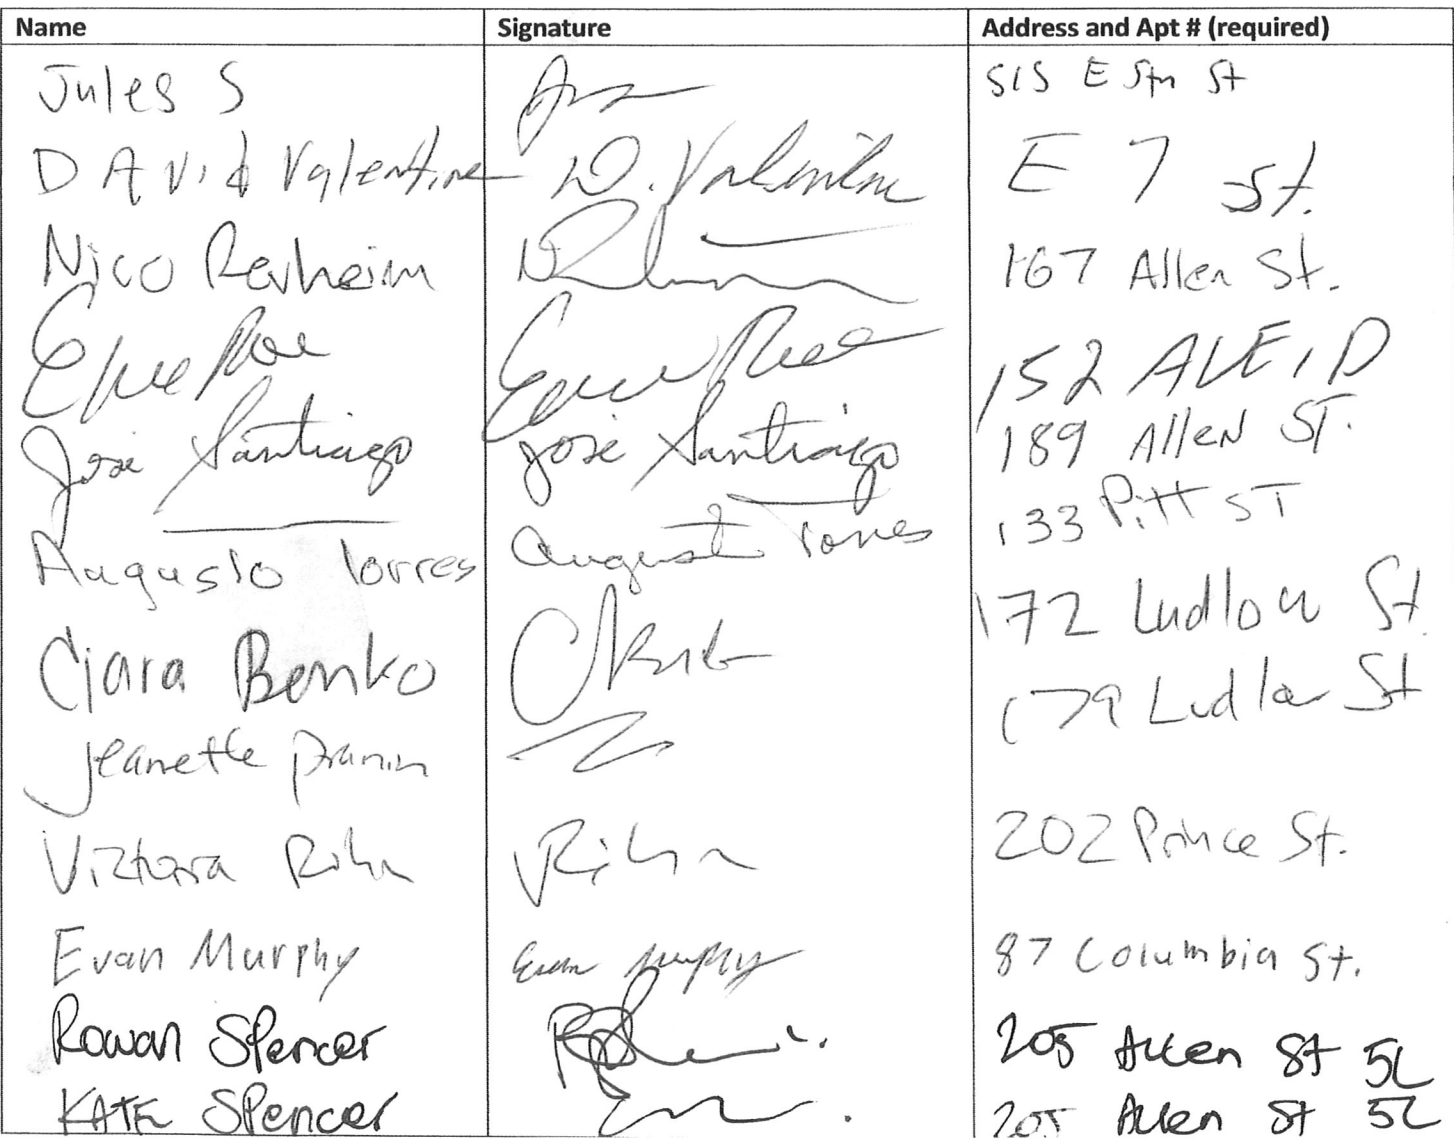 Name Signature Address and Apt # (required)
Jules S 515 E 5th St
DAvid Valentine D. Valentine E 7 St.
Nico 167 Allen St.
152 AVE, D
José Santiago José Santiago 189 Allen ST.
Augusto Torres Augusto Torres 133 Pitt ST
Ciara Benko 172 Ludlow St
Jeanette Pranin 179 Ludlow St
Riha Riha 202 Prince St.
Evan Murphy Evan Murphy 87 Columbia St.
Rowan Spencer 205 Allen St 5L
KATE Spencer 205 Allen St 5L